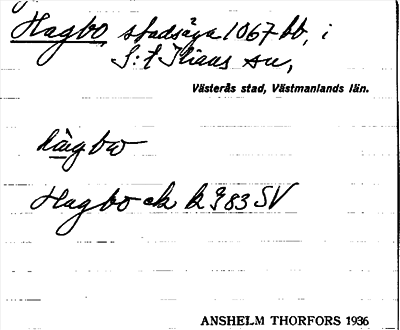 Hagbo stadsäga 1067 bb, i
S:t Ilians sn,
Västerås stad, Västmanlands län.
hàgbω
Hagbo ek k 983 SV
ANSHELM THORFORS 1936